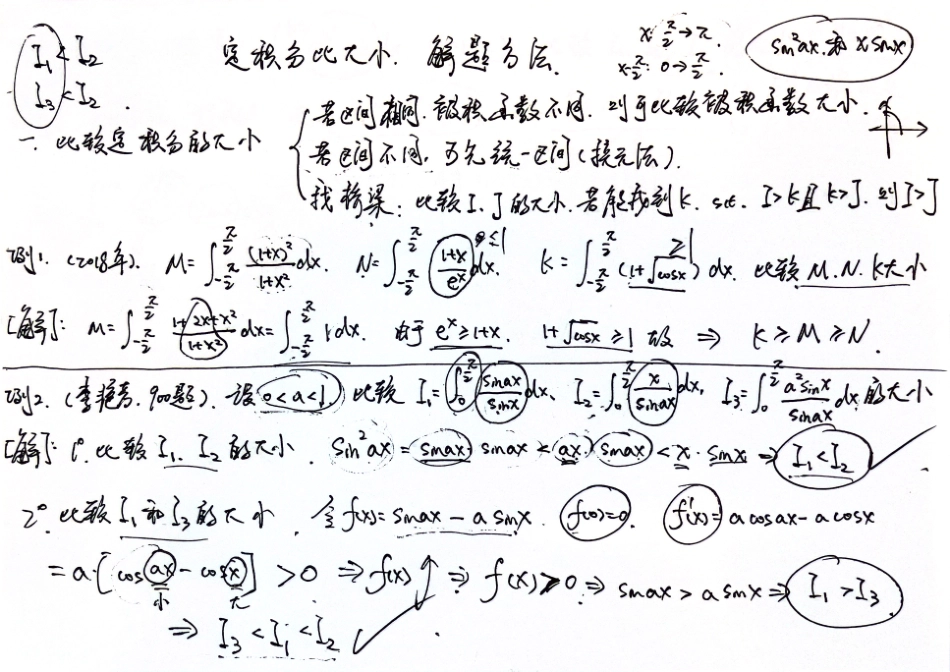 I₁<I₂
I₃<I₂.
定积分比大小.解题方法.
x: π/2→π.
x-π/2: 0→π/2.
sin²ax.和 x sinx
一、比较定积分的大小
若区间相同.被积函数不同.则于比较被积函数大小.
若区间不同,可先统一区间(换元法).
找桥梁:比较I、J的大小.若能找到k. s.t. I>k且k>J.则I>J
例1.(2018年). M=∫_{-π/2}^{π/2} (1+x)²/(1+x²) dx. N=∫_{-π/2}^{π/2} (1+x)/e^x dx. ≤1 K=∫_{-π/2}^{π/2} (1+√cosx) dx. ≥1 比较M.N.K大小
[解]: M=∫_{-π/2}^{π/2} (1+2x+x²)/(1+x²) dx=∫_{-π/2}^{π/2} 1dx. 由于 e^x≥1+x. 1+√cosx≥1 故 ⇒ K≥M≥N.
例2.(李艳芳.900题).设0<a<1,比较 I₁=∫_0^{π/2} sinax/sinx dx、I₂=∫_0^{π/2} x/sinax dx, I₃=∫_0^{π/2} a²sinx/sinax dx的大小
[解]: 1°.比较I₁、I₂的大小. sin²ax=sinax·sinax<ax·sinax<x·sinx ⇒ I₁<I₂
2°比较I₁和I₃的大小.令f(x)=sinax-a sinx. f(0)=0. f'(x)=a cosax-a cosx
=a·[cosax-cosx]>0 ⇒f(x)↑⇒ f(x)>0.⇒ sinax>a sinx⇒ I₁>I₃
小 大
⇒ I₃<I₁<I₂